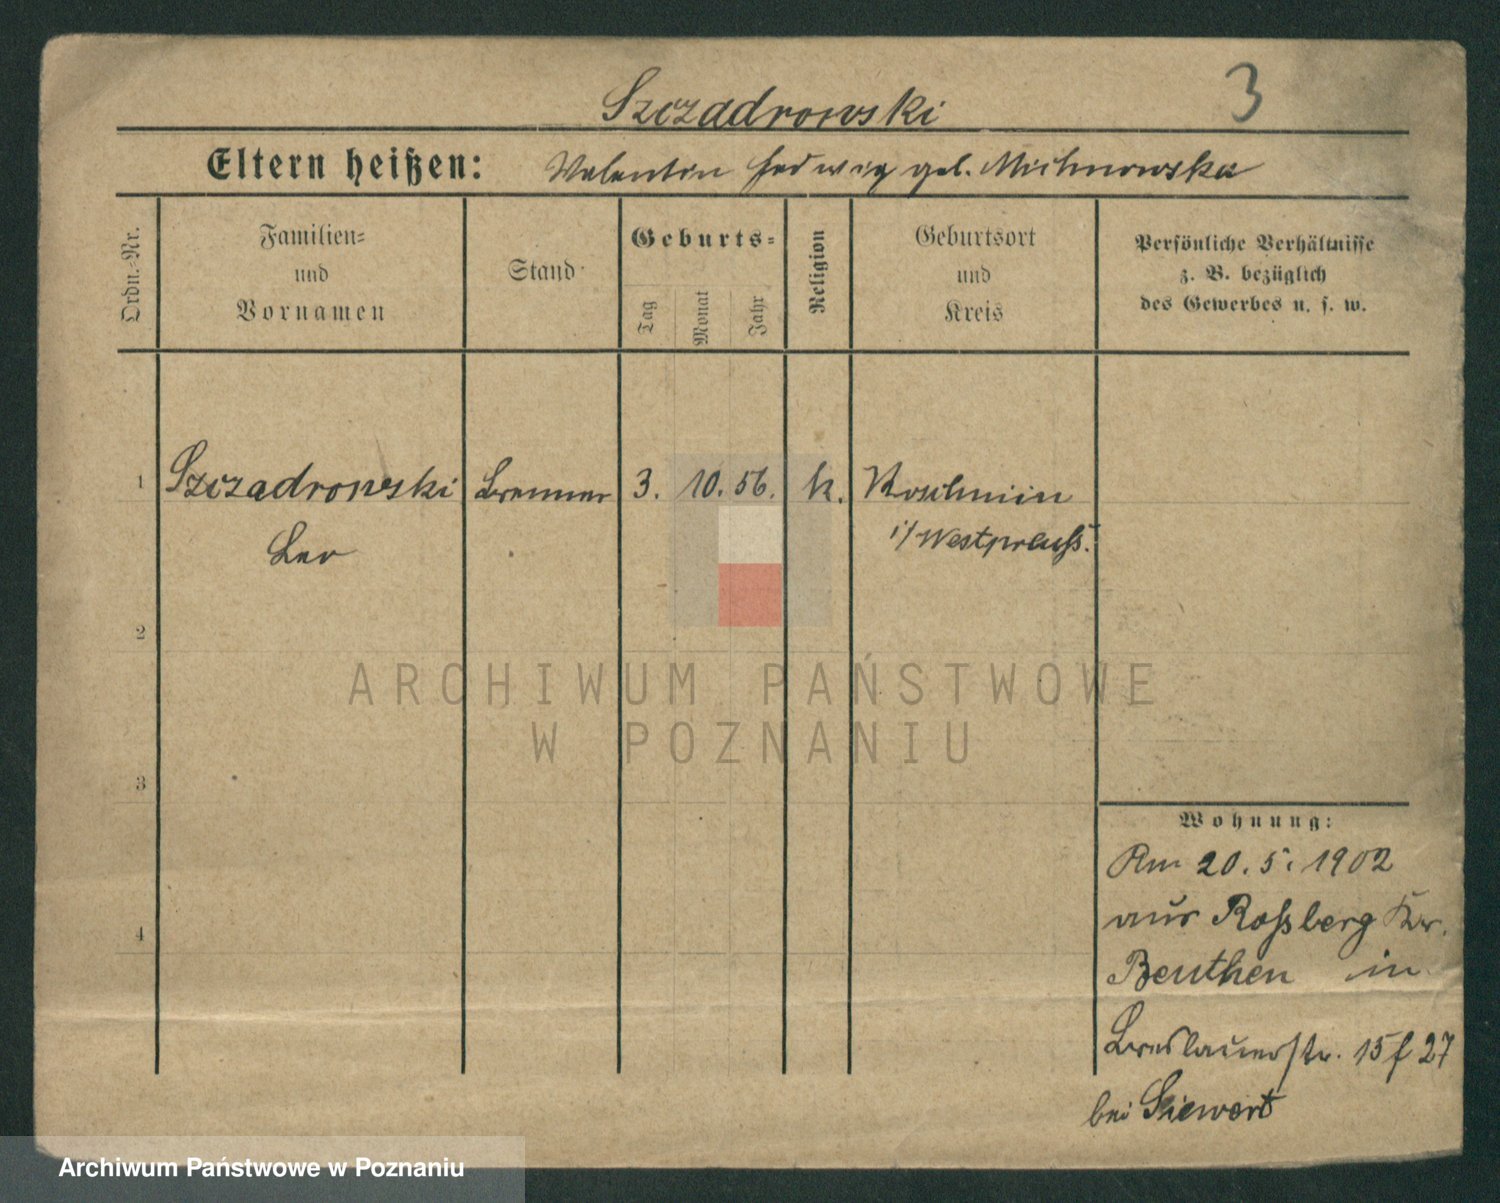 Szczadrowski
3
Eltern heißen: Valentin Hedwig geb. Michnowska
Ordn.-Nr.
Familien-
und
Vornamen
Stand
Geburts-
Tag
Monat
Jahr
Religion
Geburtsort
und
Kreis
Persönliche Verhältnisse
z. B. bezüglich
des Gewerbes u. s. w.
1 Szczadrowski Brenner 3. 10. 56. k. Koschmin
Leo i/Westpreuß.
2
3
4
Wohnung:
Am 20. 5. 1902
aus Roßberg Kr.
Beuthen in
Breslauerstr. 15 f 27
bei Siewert
ARCHIWUM PAŃSTWOWE
W POZNANIU
Archiwum Państwowe w Poznaniu